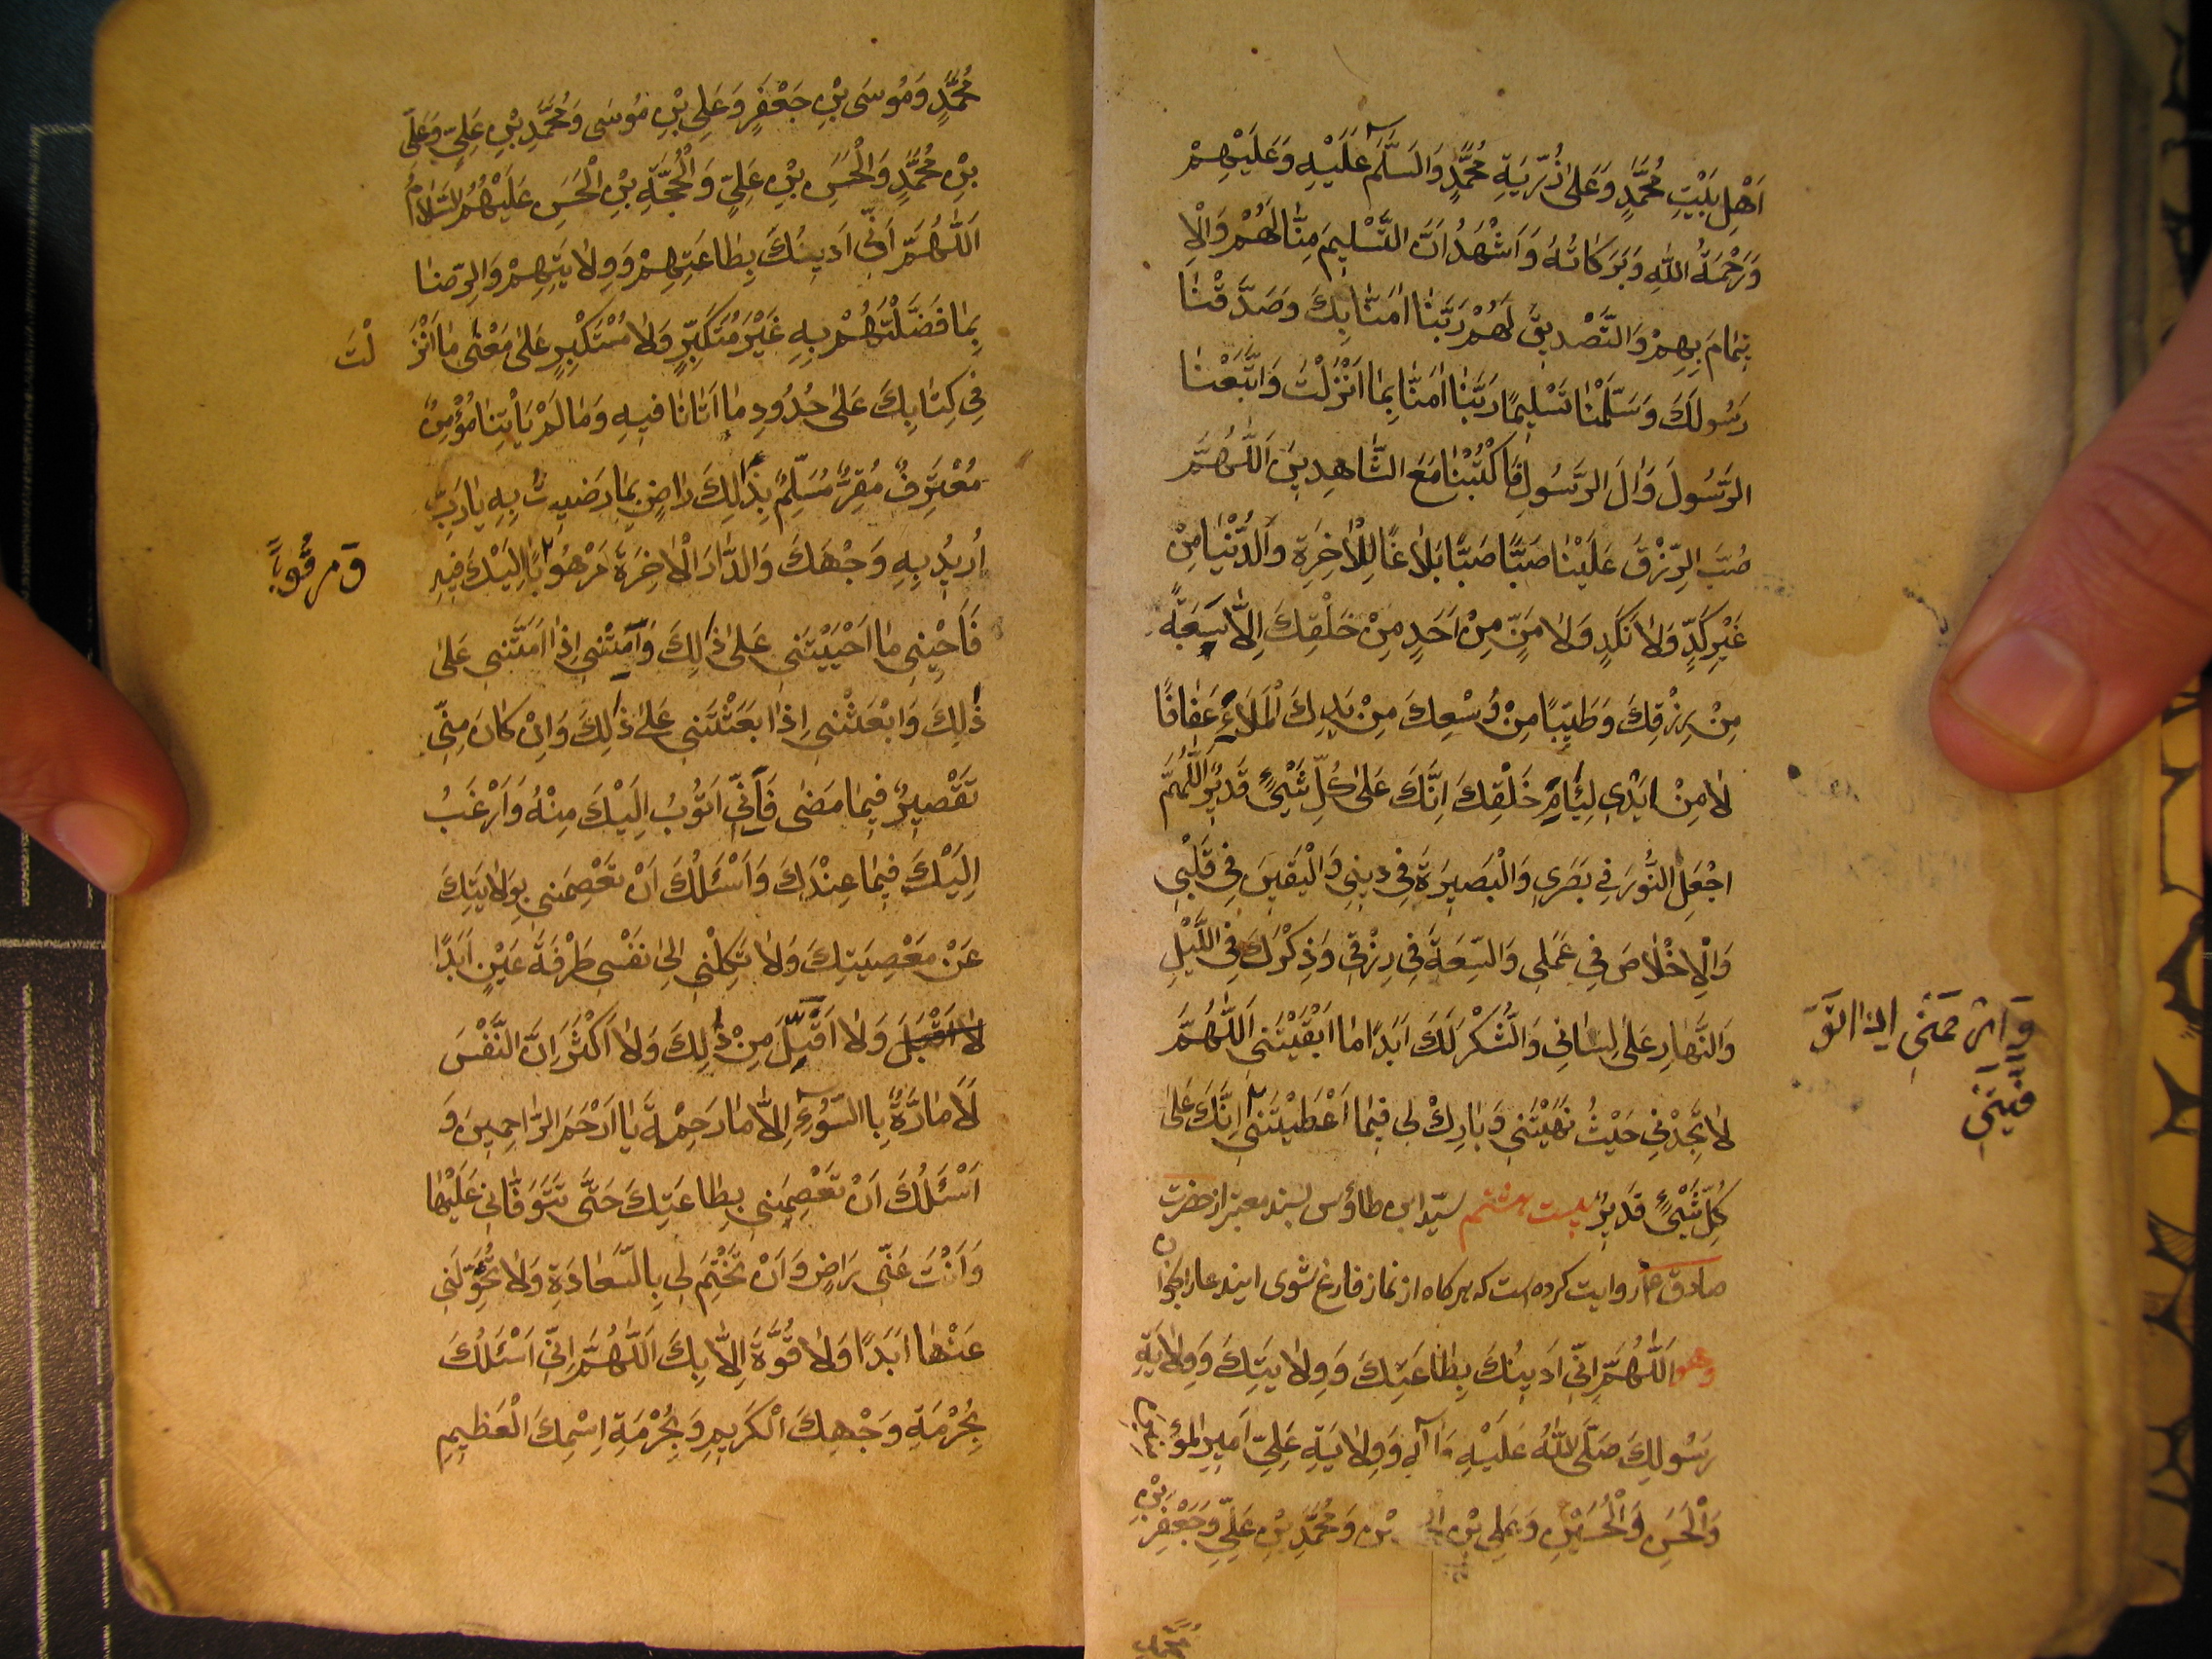 اَهْلِ بَيْتِ مُحَمَّدٍ وَعَلىٰ ذُرِّيَةِ مُحَمَّدٍ وَالسَّلَمُ عَلَيْهِ وَعَلَيْهِمْ
وَرَحْمَةُ اللهِ وَبَرَكاتُهُ وَاَشْهَدُ اَنَّ التَّسْلِيمَ مِنّٰا لَهُمْ وَالْاِ
يتِمٰامَ بِهِمْ وَالتَّصْدِيقَ لَهُمْ رَبَّنٰا اٰمَنّٰا بِكَ وَصَدَّقْنٰا
رَسُولَكَ وَسَلَّمْنٰا تَسْلِيمًا رَبَّنٰا اٰمَنّٰا بِمٰا اَنْزَلْتَ وَاتَّبَعْنٰا
الرَّسُولَ وَاٰلَ الرَّسُولِ فَاكْتُبْنٰا مَعَ الشّٰاهِدِينَ اَللّٰهُمَّ
صُبَّ الرِّزْقَ عَلَيْنٰا صَبًّا صَبًّا بَلاٰغًا لِلْاٰخِرَةِ وَالدُّنْيٰا مِنْ
غَيْرِ كَدٍّ وَلاٰ نَكَدٍ وَلاٰ مَنٍّ مِنْ اَحَدٍ مِنْ خَلْقِكَ اِلّاٰ سَعَةً
مِنْ رِزْقِكَ وَطَيِّبًا مِنْ وُسْعِكَ مِنْ يَدِكَ الْمَلَاءِ عَفٰافًا
لاٰ مِنْ اَيْدِى لِئٰامِ خَلْقِكَ اِنَّكَ عَلىٰ كُلِّ شَيْءٍ قَدِيرٌ اَللّٰهُمَّ
اجْعَلِ النُّورَ فِي بَصَرِى وَالْبَصِيرَةَ فِي دِينِي وَالْيَقِينَ فِي قَلْبِي
وَالْاِخْلاٰصَ فِي عَمَلِي وَالسِّعَةَ فِي رِزْقِي وَذِكْرَكَ فِي اللَّيْلِ
وَالنَّهٰارِ عَلىٰ لِسٰانِي وَالشُّكْرَ لَكَ اَبَدًا مٰا اَبْقَيْتَنِي اَللّٰهُمَّ
لاٰ تَجِدْنِي حَيْثُ نَهَيْتَنِي وَبٰارِكْ لِي فِيمٰا اَعْطَيْتَنِي اِنَّكَ عَلىٰ
كُلِّ شَيْءٍ قَدِيرٌ بيست هشتم سيّد ابن طاؤس بسند معتبر از حضرت
صادق ع روايت كرده است كه هر كاه از نماز فارغ شوى اين دعا را بخوان
وهو اَللّٰهُمَّ اِنِّي اَدِينُكَ بِطٰاعَتِكَ وَوِلاٰيَتِكَ وَوِلاٰيَةِ
رَسُولِكَ صَلَّى اللهُ عَلَيْهِ وَآلِهِ وَوِلاٰيَةِ عَلِيٍّ اَمِيرِ الْمُؤْمِنِينَ
وَالْحَسَنِ وَالْحُسَيْنِ وَعَلِي بْنِ الْحُسَيْنِ وَمُحَمَّدِ بْنِ عَلِيٍّ وَجَعْفَرِ بْنِ
مُحَمَّدٍ
مُحَمَّدٍ وَمُوسَى بْنِ جَعْفَرٍ وَعَلِى بْنِ مُوسَى وَمُحَمَّدِ بْنِ عَلِيٍّ وَعَلِىّ
بْنِ مُحَمَّدٍ وَالْحَسَنِ بْنِ عَلِيٍّ وَالْحُجَّةِ بْنِ الْحَسَنِ عَلَيْهُمُ السَّلاٰمُ
اَللّٰهُمَّ اَنِّي اَدِينُكَ بِطٰاعَتِهِمْ وَوِلاٰيَتِهِمْ وَالرِّضٰا
بِمٰا فَضَّلْتَهُمْ بِهِ غَيْرَ مُتَكَبِّرٍ وَلاٰ مُسْتَكْبِرٍ عَلىٰ مَعْنٰى مٰا اَنْزَ لْتَ
فِي كِتٰابِكَ عَلىٰ حُدُودِ مٰا اَتٰانٰا فِيهِ وَمٰا لَمْ يَأْتِنٰا مُؤْمِنٌ
مُعْتَرِفٌ مُقِرٌّ مُسَلِّمٌ بِذٰلِكَ رٰاضٍ بِمٰا رَضِيتَ بِهِ يٰا رَبِّ
اُرِيدُ بِهِ وَجْهَكَ وَالدّٰارَ الْاٰخِرَةَ مَرْهُوبًا اِلَيْكَ فِيهِ
وَ مرقُوبًا
فَاَحْيِنِي مٰا اَحْيَيْتَنِي عَلىٰ ذٰلِكَ وَاَمِتْنِي اِذٰا اَمَتَّنِي عَلىٰ
ذٰلِكَ وَابْعَثْنِي اِذٰا بَعَثْتَنِي عَلىٰ ذٰلِكَ وَاِنْ كٰانَ مِنِّي
تَقْصِيرٌ فِيمٰا مَضٰى فَاَنِّي اَتُوبُ اِلَيْكَ مِنْهُ وَاَرْغَبُ
اِلَيْكَ فِيمٰا عِنْدَكَ وَاَسْئَلُكَ اَنْ تَعْصِمَنِي بِوِلاٰيَتِكَ
عَنْ مَعْصِيَتِكَ وَلاٰ تَكِلْنِي اِلىٰ نَفْسِي طَرْفَةَ عَيْنٍ اَبَدًا
لاٰ اَقَلَّ وَلاٰ اَقَلَّ مِنْ ذٰلِكَ وَلاٰ اَكْثَرَ اِنَّ النَّفْسَ
لَاَمّٰارَةٌ بِاالسُّوءِ اِلّاٰ مٰا رَحِمْةَ يٰا اَرْحَمَ الرّٰاحِمِينَ وَ
اَسْئَلُكَ اَنْ تَعْصِمَنِي بِطٰاعَتِكَ حَتّٰى تَتَوَفّٰانِي عَلَيْهٰا
وَاَنْتَ عَنِّي رَاضٍ وَاَنْ تَخْتِمَ لِي بِالسَّعٰادَةِ وَلاٰ تُحَوِّلَنِي
عَنْهٰا اَبَدًا وَلاٰ قُوَّةَ اِلّاٰ بِكَ اَللّٰهُمَّ اِنِّي اَسْئَلُكَ
بِحُرْمَةِ وَجْهِكَ الْكَرِيمِ وَبِحُرْمَةِ اِسْمِكَ الْعَظِيمِ